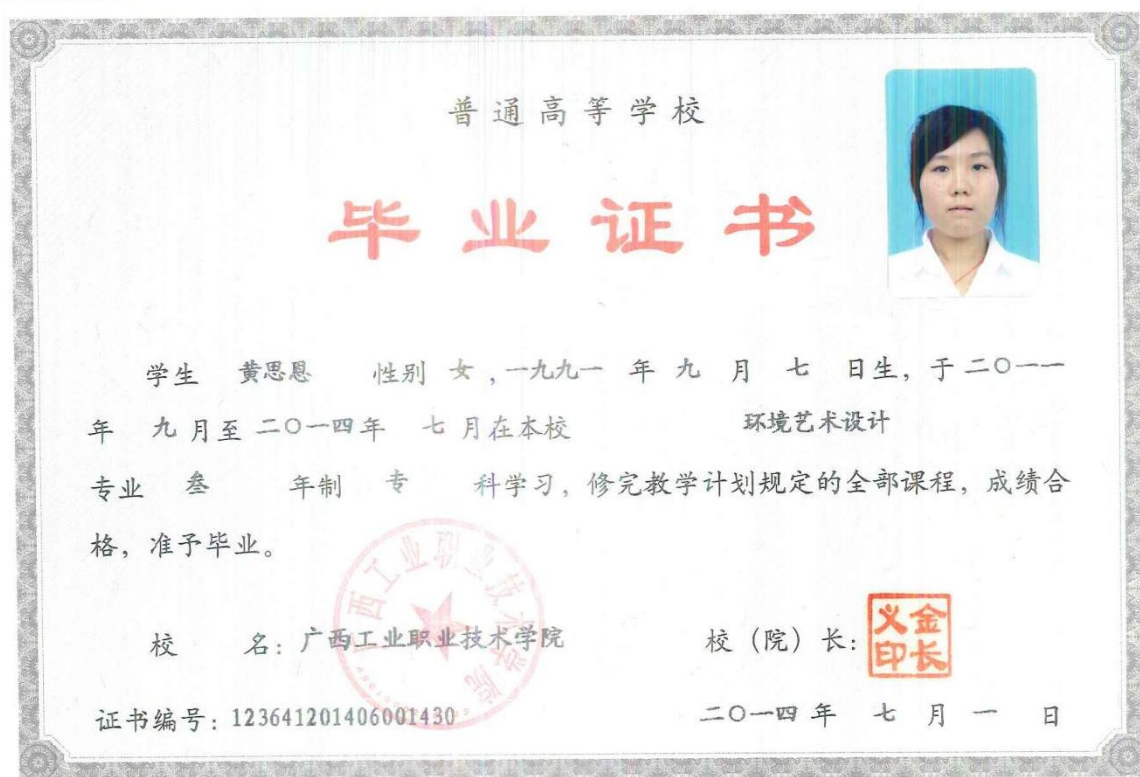 普通高等学校
毕业证书
学生 黄思恩 性别 女，一九九一 年 九 月 七 日生，于二〇一一
年 九 月至 二〇一四年 七 月在本校 环境艺术设计
专业 叁 年制 专 科学习，修完教学计划规定的全部课程，成绩合
格，准予毕业。
广西工业职业技术学院
校 名：广西工业职业技术学院 校（院）长：金长义印
证书编号：123641201406001430 二〇一四 年 七 月 一 日